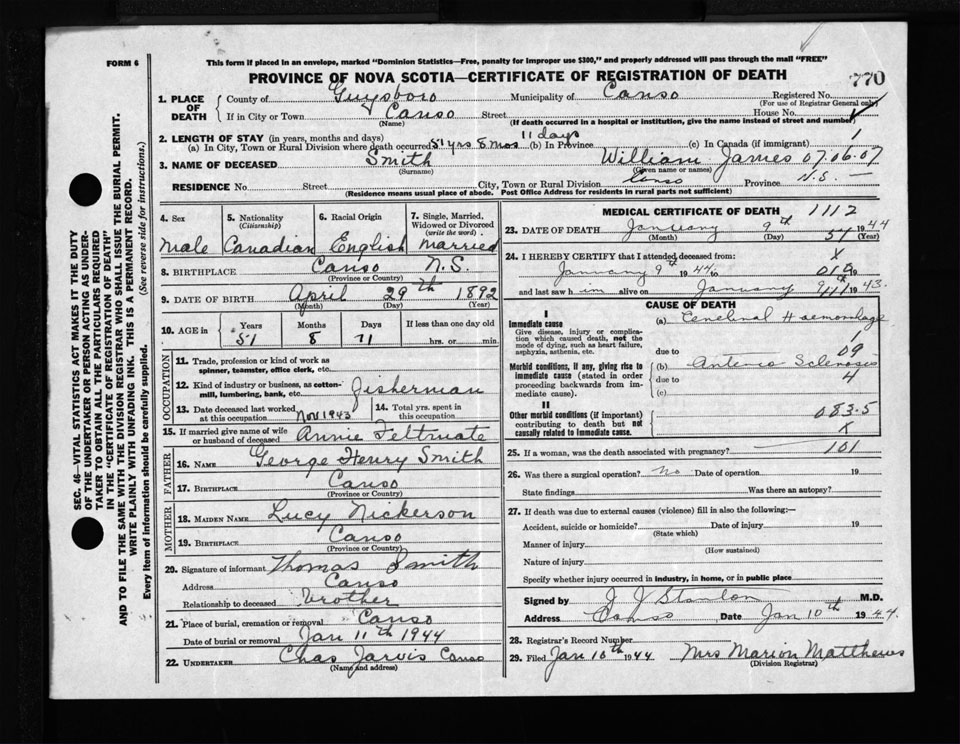 FORM 6
This form if placed in an envelope, marked "Dominion Statistics—Free, penalty for improper use $300," and properly addressed will pass through the mail "FREE"
PROVINCE OF NOVA SCOTIA—CERTIFICATE OF REGISTRATION OF DEATH
770
1. PLACE OF DEATH
County of Guysboro Municipality of Canso Registered No.
(For use of Registrar General only)
If in City or Town Canso Street House No.
(Name) (If death occurred in a hospital or institution, give the name instead of street and number)
2. LENGTH OF STAY (in years, months and days) 11 days 1
(a) In City, Town or Rural Division where death occurred 51 yrs 8 mos (b) In Province (c) In Canada (if immigrant)
3. NAME OF DECEASED Smith William James 07.06.07
(Surname) (Given name or names)
RESIDENCE No. Street City, Town or Rural Division Canso Province N.S. —
(Residence means usual place of abode. Post Office Address for residents in rural parts not sufficient)
SEC. 46—VITAL STATISTICS ACT MAKES IT THE DUTY
OF THE UNDERTAKER OR PERSON ACTING AS UNDER-
TAKER TO OBTAIN ALL THE PARTICULARS REQUIRED
IN THE "CERTIFICATE OF REGISTRATION OF DEATH"
AND TO FILE THE SAME WITH THE DIVISION REGISTRAR WHO SHALL ISSUE THE BURIAL PERMIT.
WRITE PLAINLY WITH UNFADING INK. THIS IS A PERMANENT RECORD.
Every item of information should be carefully supplied. (See reverse side for instructions.)
4. Sex 5. Nationality (Citizenship) 6. Racial Origin 7. Single, Married, Widowed or Divorced (write the word)
Male Canadian English Married
8. BIRTHPLACE Canso N.S.
(Province or Country)
9. DATE OF BIRTH April 29th 1892
(Month) (Day) (Year)
10. AGE in Years Months Days If less than one day old
51 8 11 hrs. or min.
OCCUPATION
11. Trade, profession or kind of work as
spinner, teamster, office clerk, etc.
12. Kind of industry or business, as cotton-
mill, lumbering, bank, etc. Fisherman
13. Date deceased last worked at this occupation Nov 1943 14. Total yrs. spent in this occupation
15. If married give name of wife or husband of deceased Annie Feltmate
FATHER
16. NAME George Henry Smith
17. BIRTHPLACE Canso
(Province or Country)
MOTHER
18. MAIDEN NAME Lucy Nickerson
19. BIRTHPLACE Canso
(Province or Country)
20. Signature of informant Thomas Smith
Address Canso
Relationship to deceased Brother
21. Place of burial, cremation or removal Canso
Date of burial or removal Jan 11th 1944
22. UNDERTAKER Chas Jarvis Canso
(Name and address)
MEDICAL CERTIFICATE OF DEATH 1112
23. DATE OF DEATH January 9th 51 1944
(Month) (Day) (Year)
24. I HEREBY CERTIFY that I attended deceased from: X
January 9th 1944 to 19
and last saw him alive on January 9th 1943.
CAUSE OF DEATH
I
Immediate cause (a) Cerebral Haemorrhage
Give disease, injury or complication which caused death, not the mode of dying, such as heart failure, asphyxia, asthenia, etc.
due to 09
Morbid conditions, if any, giving rise to immediate cause (stated in order proceeding backwards from immediate cause).
(b) Arterio Sclerosis
due to 4
(c)
II
Other morbid conditions (if important) contributing to death but not causally related to immediate cause.
083.5
X
25. If a woman, was the death associated with pregnancy? 101
26. Was there a surgical operation? No Date of operation 19
State findings Was there an autopsy?
27. If death was due to external causes (violence) fill in also the following:—
Accident, suicide or homicide? Date of injury 19
(State which)
Manner of injury
(How sustained)
Nature of injury
Specify whether injury occurred in industry, in home, or in public place
Signed by J J Stanton M.D.
Address Canso Date Jan 10th 1944.
28. Registrar's Record Number
29. Filed Jan 10th 1944 Mrs Marion Matthews
(Division Registrar)